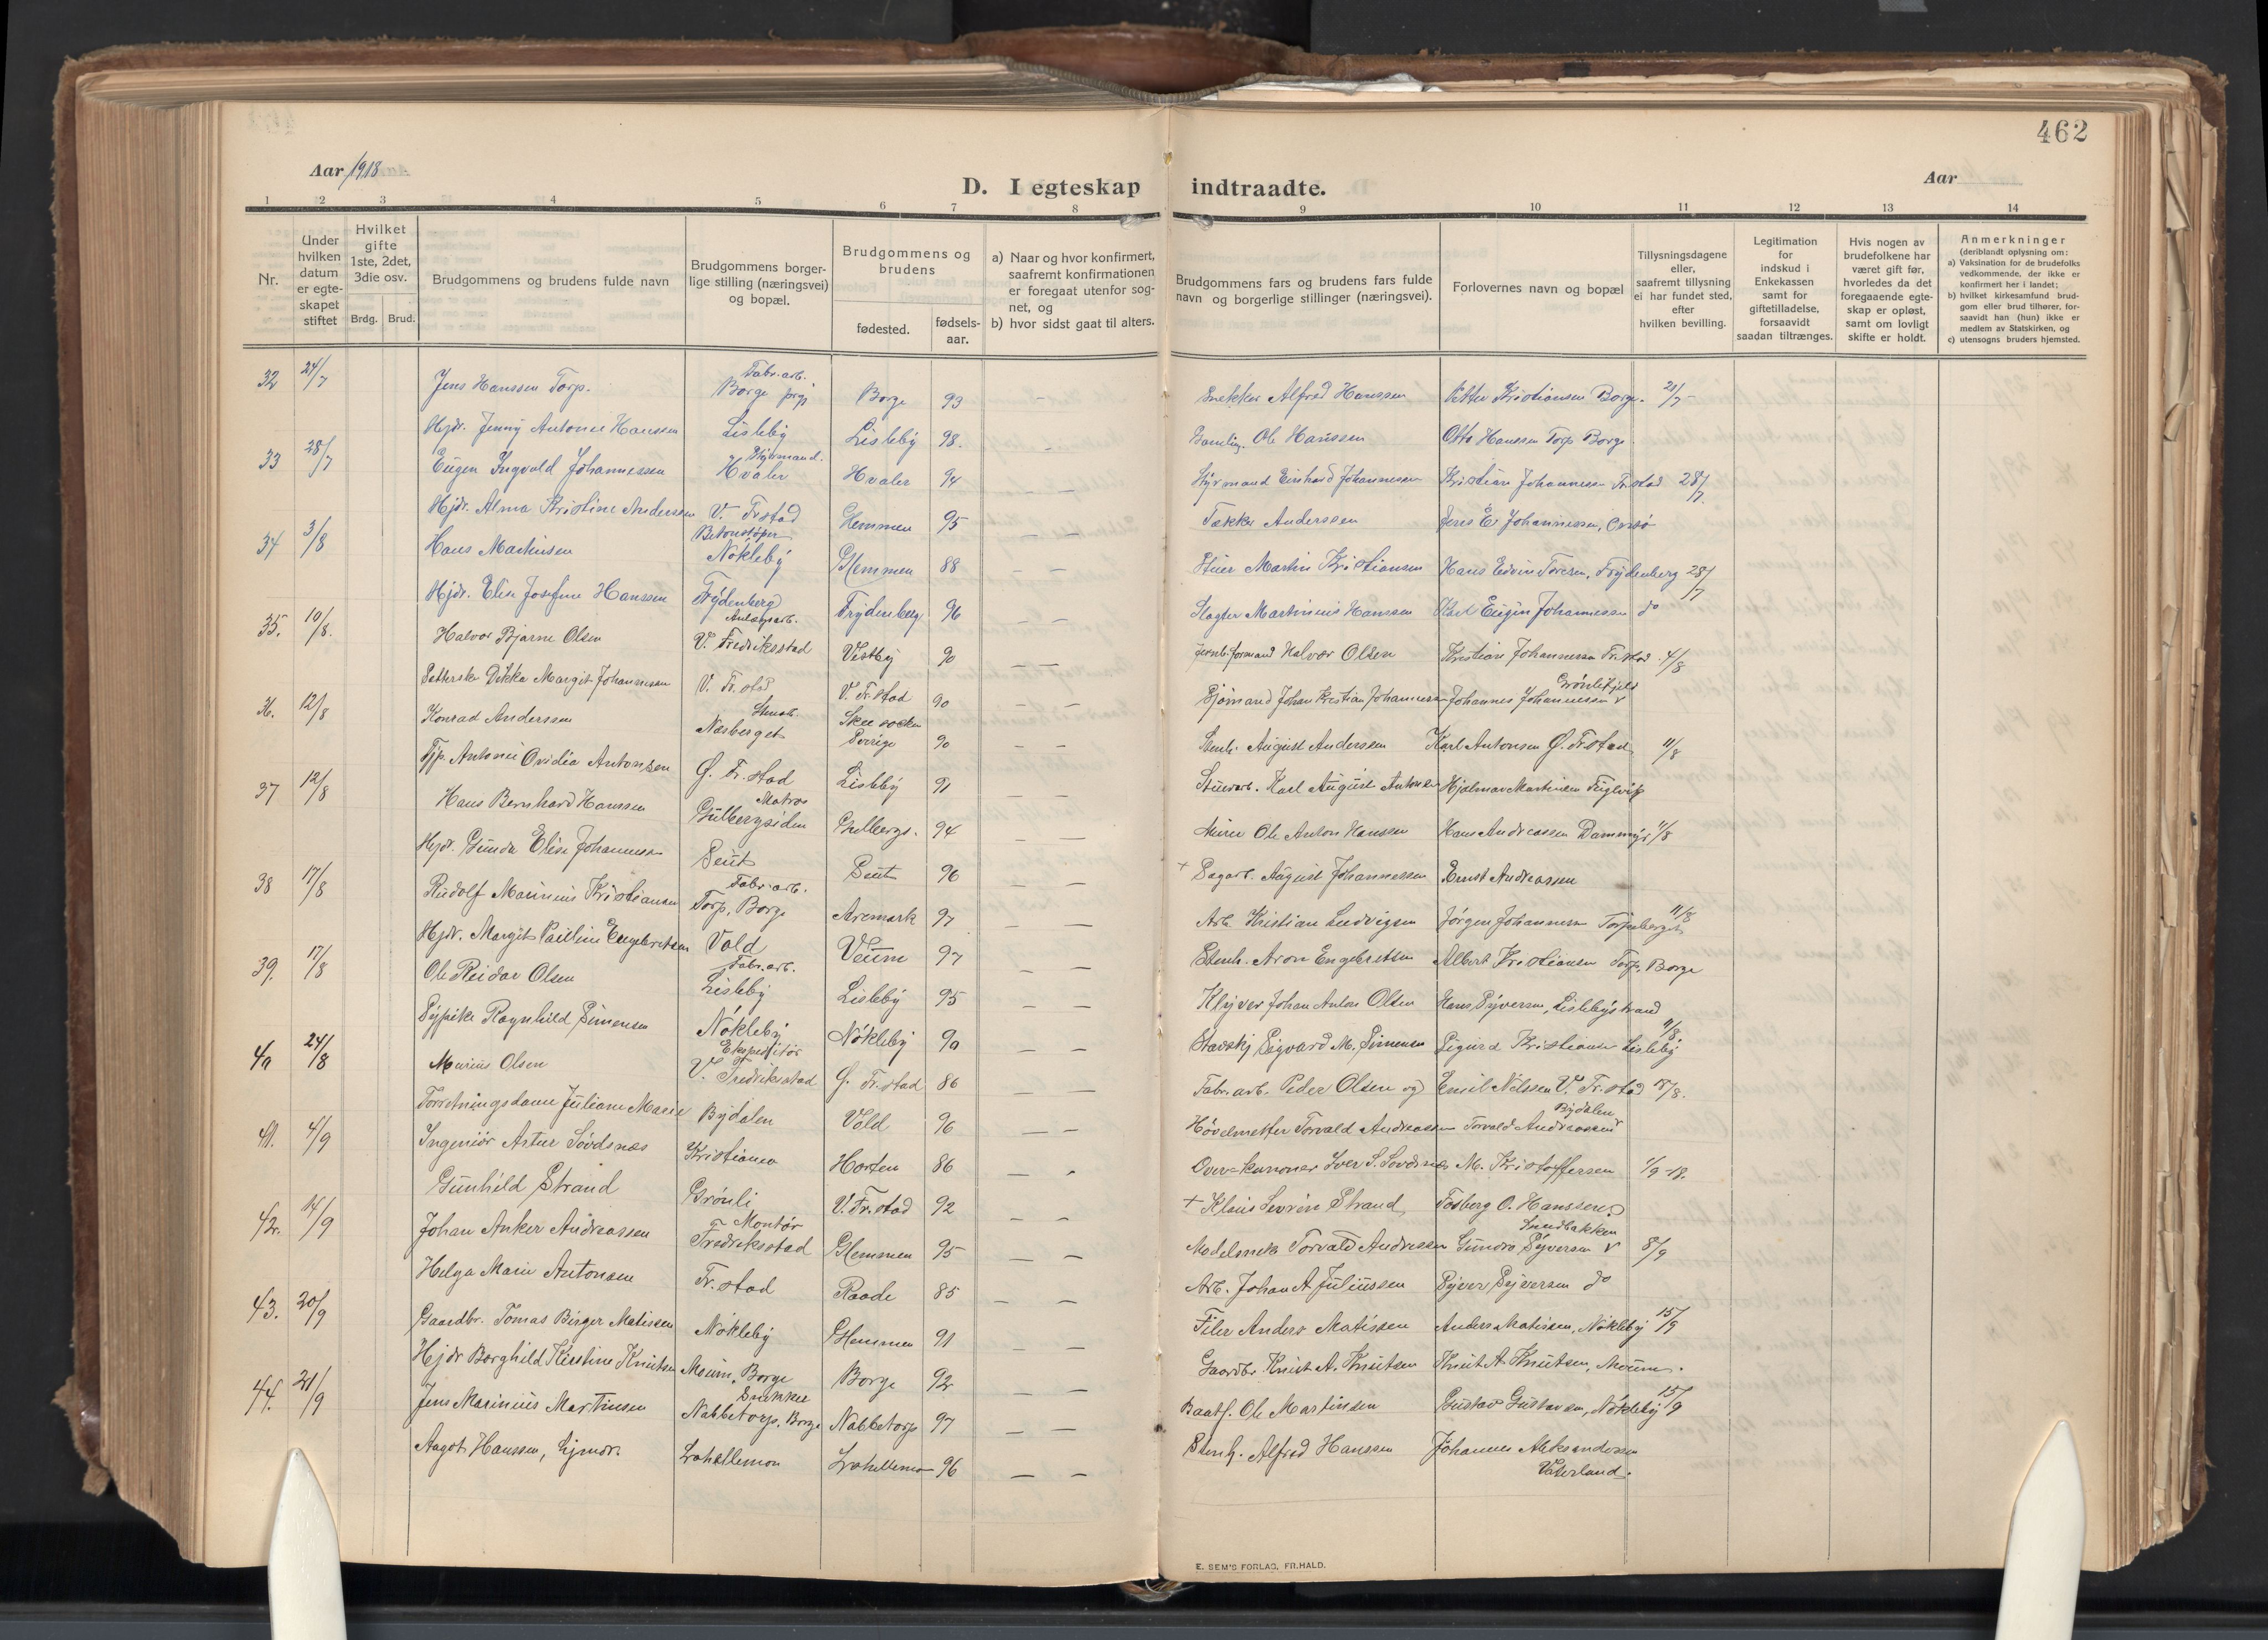 462
Aar 1918
D. I egteskap indtraadte.
Aar
1 2 3 4 5 6 7 8 9 10 11 12 13 14
Nr.
Under hvilken datum er egte-skapet stiftet
Hvilket gifte 1ste, 2det, 3die osv.
Brdg. Brud.
Brudgommens og brudens fulde navn
Brudgommens borger-lige stilling (næringsvei) og bopæl.
Brudgommens og brudens
fødested.
fødsels-aar.
a) Naar og hvor konfirmert, saafremt konfirmationen er foregaat utenfor sog-net, og
b) hvor sidst gaat til alters.
Brudgommens fars og brudens fars fulde navn og borgerlige stillinger (næringsvei).
Forlovernes navn og bopæl
Tillysningsdagene eller, saafremt tillysning ei har fundet sted, efter hvilken bevilling.
Legitimation for indskud i Enkekassen samt for giftetilladelse, forsaavidt saadan tiltrænges.
Hvis nogen av brudefolkene har været gift før, hvorledes da det foregaaende egte-skap er opløst, samt om lovligt skifte er holdt.
Anmerkninger (deriblandt oplysning om:
a) Vaksination for de brudefolks vedkommende, der ikke er konfirmert her i landet;
b) hvilket kirkesamfund brud-gom eller brud tilhører, for-saavidt han (hun) ikke er medlem av Statskirken, og
c) utensogns bruders hjemsted.
32 24/7 Jens Hanssen Torp. Fabr. arb. Borge prgj Borge 93 – Snekker Alfred Hanssen Petter Kristiansen Borge. 21/7
Hjdr. Jenny Antonie Hanssen Lisleby Lisleby 98. – Ole Hanssen Otto Hanssen Torp Borge
33 28/7 Eugen Ingvald Johannessen Styrmand. Hvaler Hvaler 94 – – Styrmand Einhard Johannessen Kristian Johannessen Fr.stad 28/7.
Hjdr. Alma Kristine Anderssen V. Fr.stad Glemmen 95 – – Anderssen Johannessen,
34 3/8 Hans Martinsen Betonstøper Nøkleby Glemmen 88 – – Martin Kristiansen Hans Edvin Toresen, Frydenberg 28/7
Hjdr. Elise Josefine Hanssen Frydenberg Frydenberg 96 – – Slagter Martinius Hanssen Karl Eugen Johannessen do
35. 10/8. Halvor Bjarne Olsen Anlægsarb. V. Fredriksstad Vestby 90 – – Jernb. formand Halvor Olsen Kristian Johannessen Fr.stad 4/8
Dikka Margit Johannessen V. Fr.std V. Fr.stad 90 – – Sjømand Johan Kristian Johannessen Johannes Johannessen Grønlifjeld
36. 12/8 Konrad Anderssen Stenarb. Næsberget Skee socken Sverige 90 – – Stenh. August Anderssen Karl Antonsen G. Fr.stad 11/8
Tjp. Antonie Ovidia Antonsen G. Fr.stad Lisleby 91 – – Stuerarb. Karl August Antonsen Hjalmar Martinsen Fuglevik
37 12/8 Hans Bernhard Hanssen Matros Gulbergsiden Gulbergs. 94 – – Murer Ole Anton Hanssen Hans Andreassen Dammyr 11/8
Hjdr. Gunda Elise Johannessen Seut Seut 96 – – + Sagarb. August Johannessen Ernst Andreassen
38 17/8 Rudolf Marinius Kristiansen Fabr. arb. Torp, Borge Aremark 97 – – Arb. Kristian Ludvigsen Jørgen Johannessen Torpeberget 11/8
Hjdr. Margit Pauline Engebretsen Vold Veum 97 – – Stenh. Aron Engebretsen Albert Kristiansen Torp, Borge
39. 17/8 Ole Reidar Olsen Fabr. arb. Lisleby Lisleby 95 – – Klyver Johan Anton Olsen Hans Syversen, Lislebystrand
Sypike Ragnhild Simensen Nøkleby Nøkleby 90 – – Sigvard M. Simensen Sigurd Kristiansen Lisleby 11/8.
40 24/8 Marius Olsen Ekspeditør V. Fredriksstad G. Fr.stad 86 – – Fabr. arb. Peder Olsen og Emil Nilssen V. Fr.stad 18/8.
Forretningsdame Juliane Marie Bydalen Vold 96 – – Høvelmester Torvald Andreassen Torvald Andreassen Bydalen
41. 4/9 Ingeniør Artur Søvdsnæs Kristiania Horten 86 – – Over-kanoner Iver S. Søvdsnæs M. Kristoffersen 1/9-18.
Gunhild Strand Grønli V. Fr.stad 92 – – + Klaus Severin Strand Fosberg O. Hanssen
42. 14/9 Johan Anker Andreassen Montør Fredriksstad Glemmen 95 – – Modelsnek. Torvald Andreassen Gunda Syversen Sundbakken 8/9
Helga Marie Antonsen Fr. stad Raade 85 – – Arb. Johan A. Juliussen Syver Syversen do
43. 20/9 Gaardbr. Tomas Birger Matissen Nøkleby Glemmen 91 – – Filer Anders Matissen Anders Matissen, Nøkleby 15/9
Hjdr Borghild Kirstine Knutsen Moum, Borge Borge 92 – – Gaardbr. Knut A. Knutsen Knut A. Knutsen, Moum.
44. 21/9 Jens Marinius Martinsen Snekker Nabbetorp, Borge Nabbetorp 97 – – Baatf. Ole Martinsen Gustav Gustavsen, Nøkleby 15/9
Aagot Hanssen, hjmdr. Lahellemoen Lahellemoen 96 – – Stenh. Alfred Hanssen Johannes Aleksandersen Vaterland.
E. SEM'S FORLAG, FR.HALD.